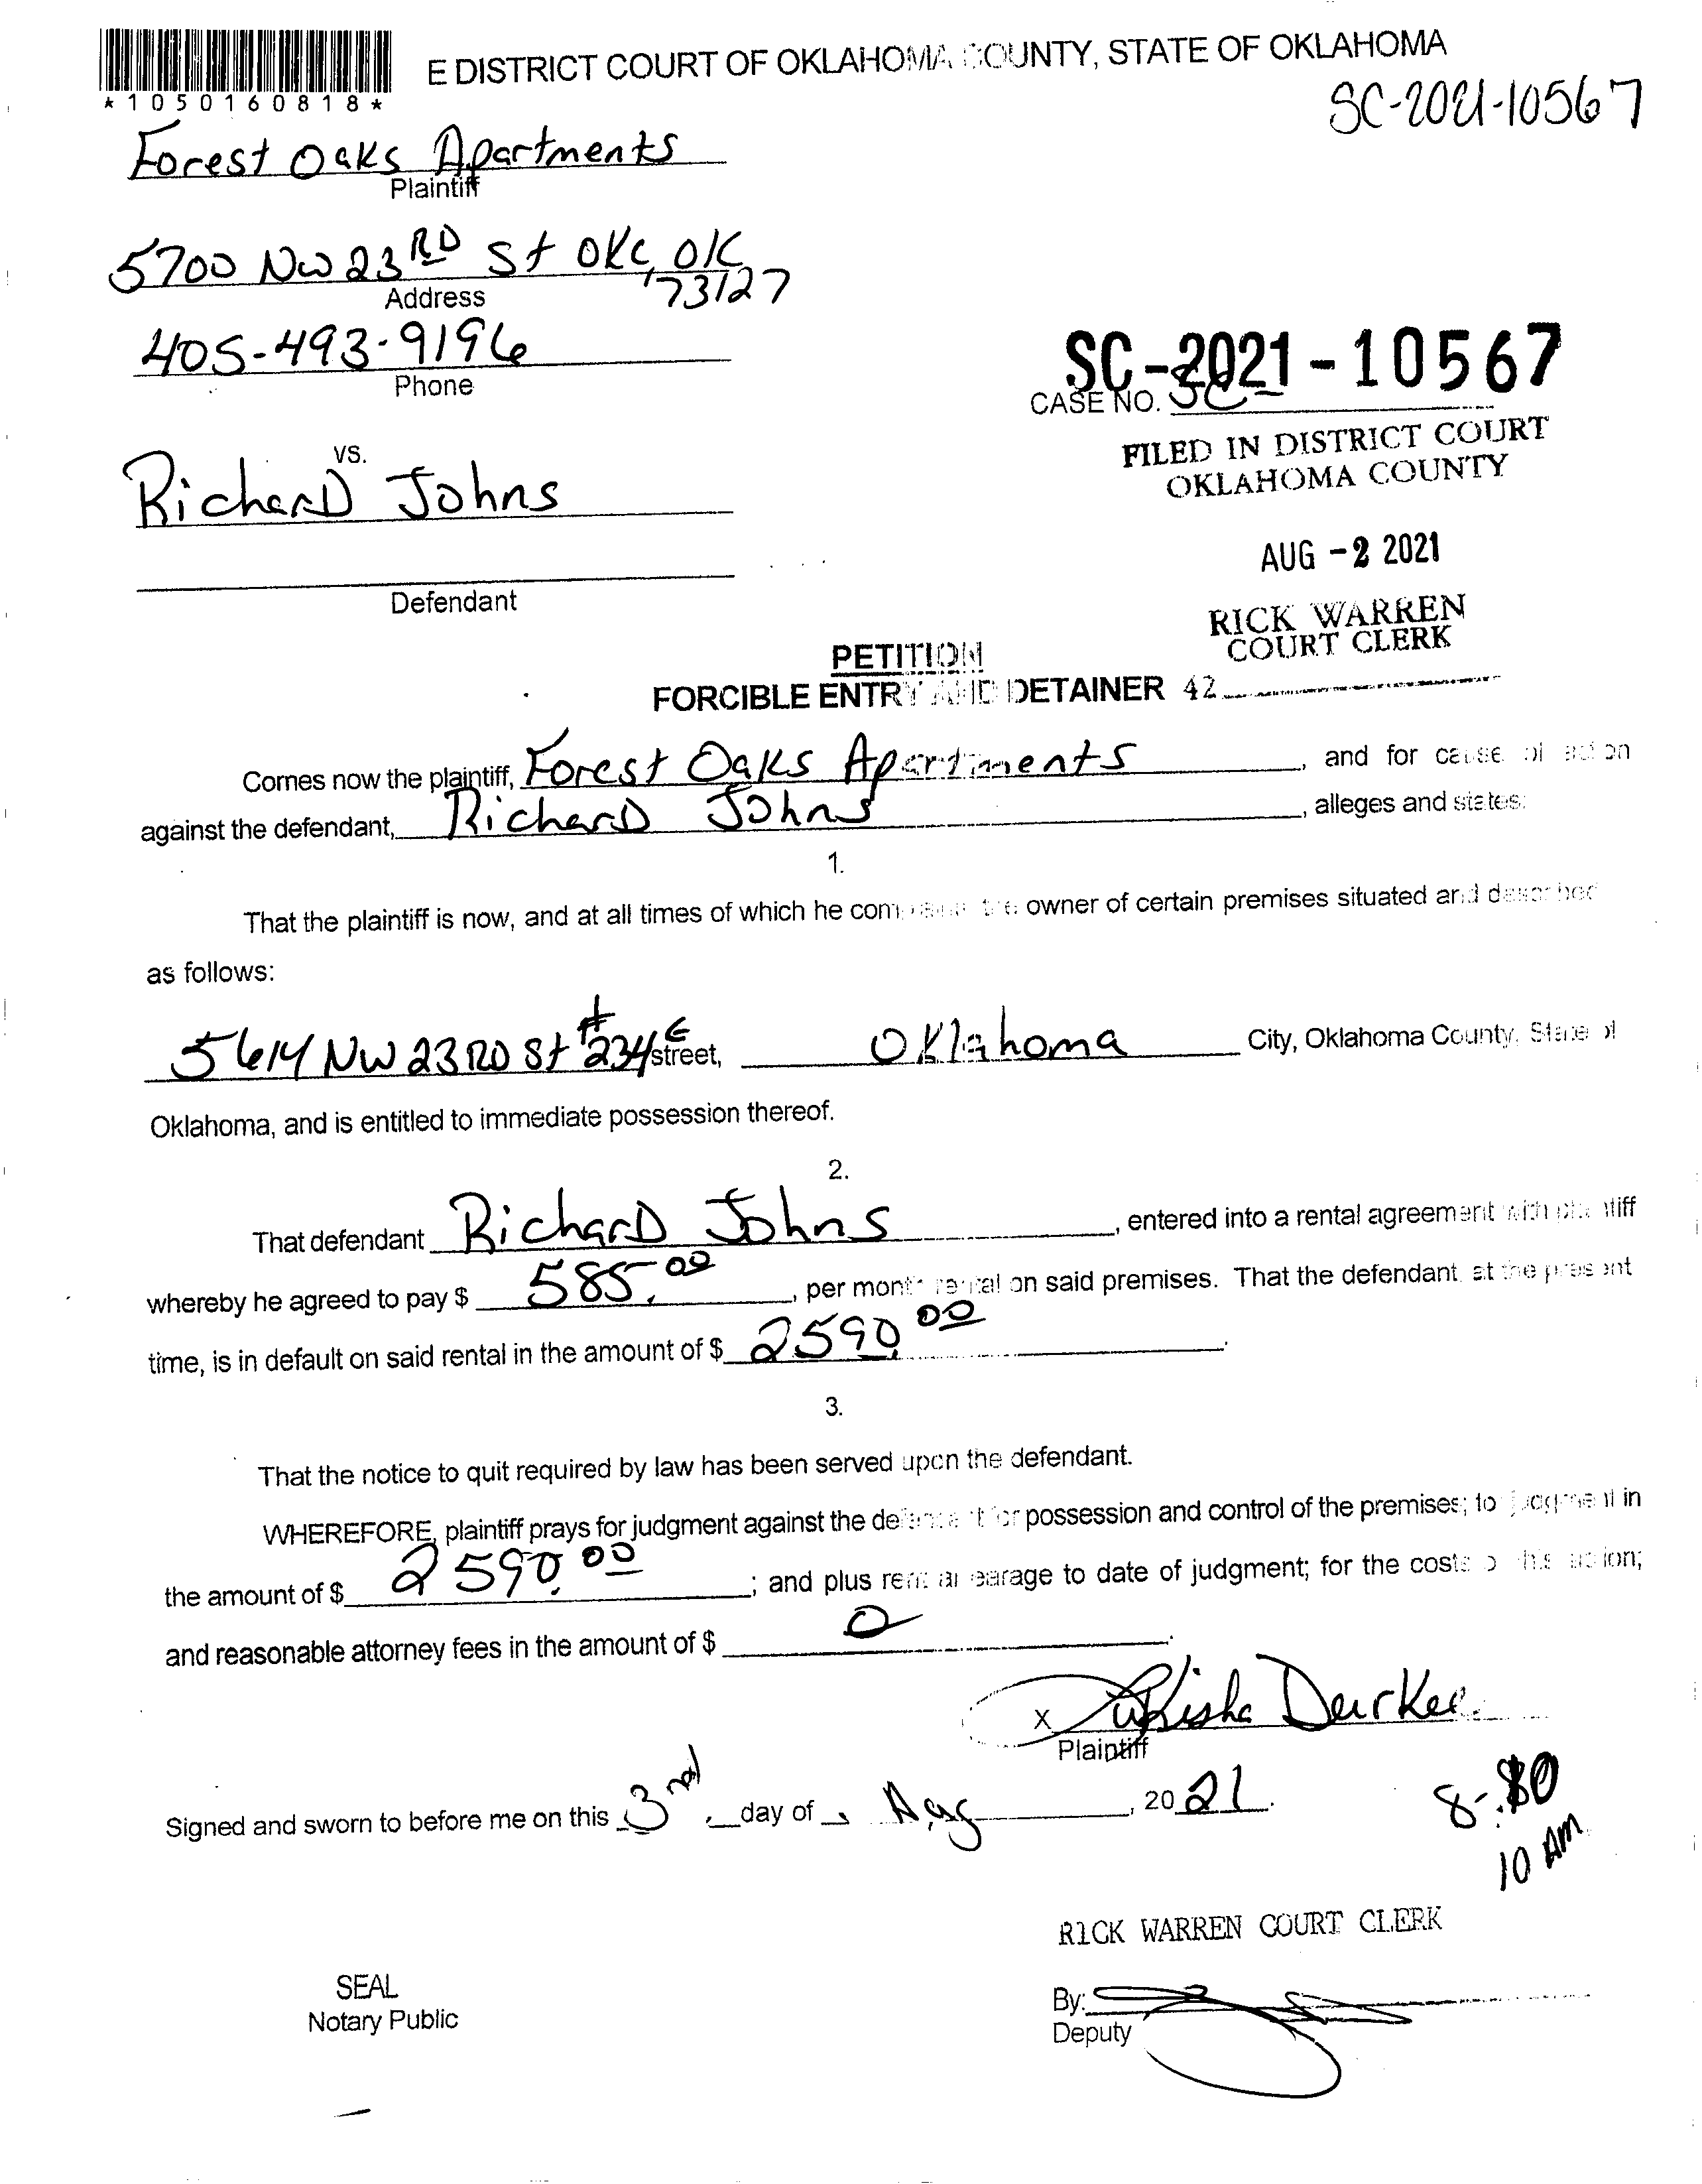 *1050160818*
E DISTRICT COURT OF OKLAHOMA COUNTY, STATE OF OKLAHOMA
SC-2021-10567
Forest Oaks Apartments
Plaintiff
5700 NW 23RD St OKC, OK
73127
Address
405-493-9196
Phone
SC-2021-10567
CASE NO. SC-
FILED IN DISTRICT COURT
OKLAHOMA COUNTY
vs.
Richard Johns
AUG -2 2021
Defendant
RICK WARREN
COURT CLERK
PETITION
FORCIBLE ENTRY AND DETAINER 42
Comes now the plaintiff, Forest Oaks Apartments, and for cause of action
against the defendant, Richard Johns, alleges and states:
1.
That the plaintiff is now, and at all times of which he owner of certain premises situated and described
as follows:
5614 NW 23RD St #234E street, Oklahoma City, Oklahoma County, State of
Oklahoma, and is entitled to immediate possession thereof.
2.
That defendant Richard Johns, entered into a rental agreement with plaintiff
whereby he agreed to pay $ 585.00, per month rental on said premises. That the defendant at the present
time, is in default on said rental in the amount of $ 2590.00.
3.
That the notice to quit required by law has been served upon the defendant.
WHEREFORE, plaintiff prays for judgment against the defendant for possession and control of the premises; to judgment in
the amount of $ 2590.00; and plus rent arrearage to date of judgment; for the costs of this action;
and reasonable attorney fees in the amount of $ 0.
X Durkee
Plaintiff
Signed and sworn to before me on this 3rd day of Aug, 2021.
10 AM
RICK WARREN COURT CLERK
SEAL
Notary Public
By:
Deputy